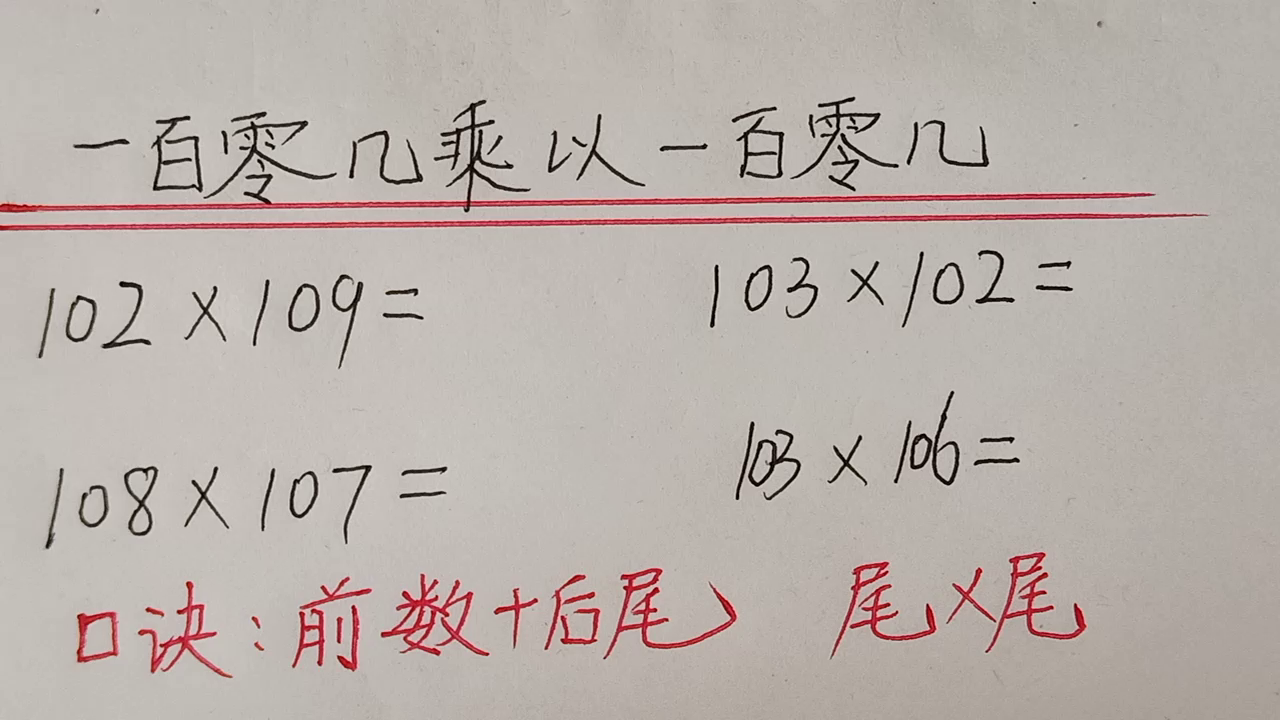 一百零几乘以一百零几
102×109=
103×102=
108×107=
103×106=
口诀:前数+后尾、 尾×尾